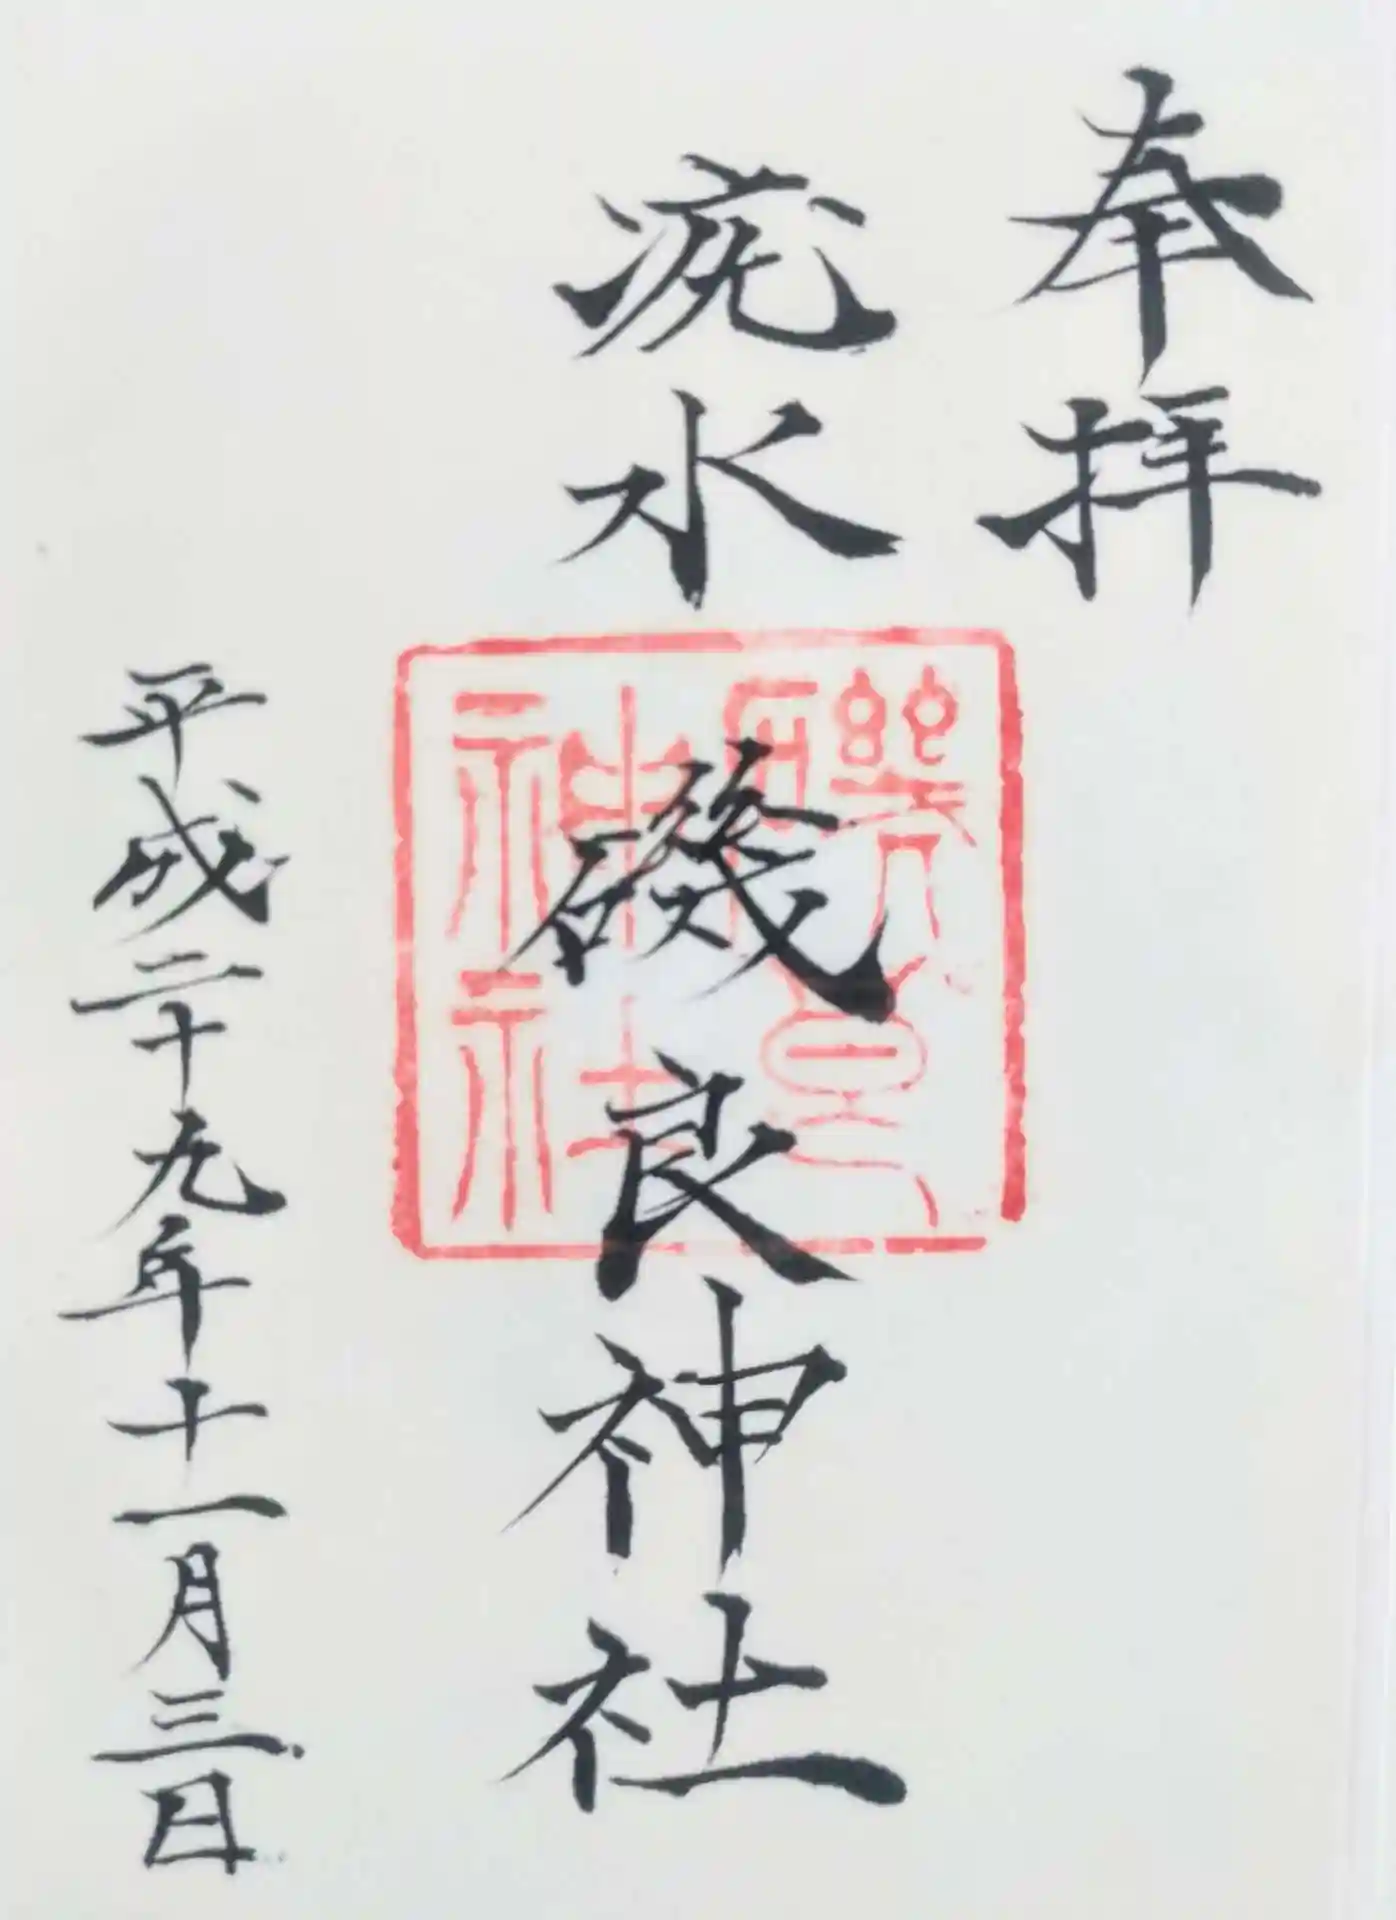 奉拝
疣水
磯良神社
磯良
神社
平成二十九年十一月三日